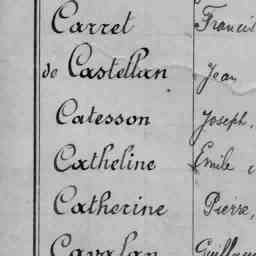 Carret Francis
de Castellan Jean
Catesson Joseph.
Catheline Emile
Catherine Pierre,
Cavalan Guillau